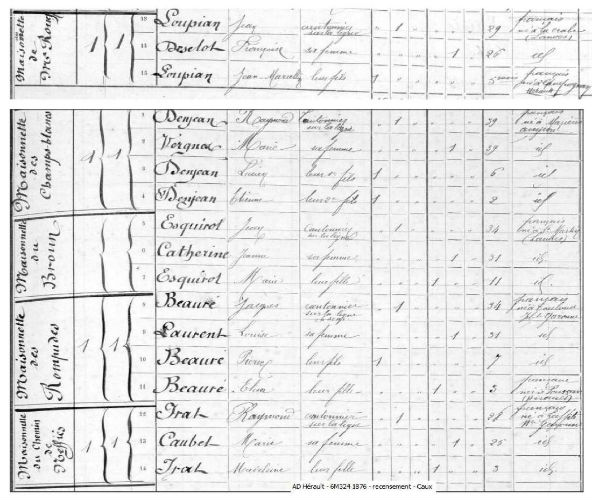 Maisonnette de Mr Rouy
1 1
13 Loupian Jean cantonnier sur la ligne 1 29 français né à
14 Broselot Françoise sa femme 1 26 id
15 Loupian Jean Marcellin leur fils 1 5 mois français
Maisonnette des Champs blancs
1 1
1 Denjean Raymond Cantonnier sur la ligne 1 39 français né à
2 Vergnes Marie sa femme 1 39 id
3 Denjean leur 1er fils 1 6 id
4 Denjean Etienne leur 2e fils 1 2 id
Maisonnette du Broun
1 1
5 Esquirol Jean cantonnier sur la ligne 1 34 français né à
6 Catherine Jeanne sa femme 1 31 id
7 Esquirol Marie leur fille 1 11 id
Maisonnette des Rompudes
1 1
8 Beauré Jacques cantonnier sur la ligne 1 34 français né à Toulouse
9 Laurent Louise sa femme 1 31 id
10 Beauré Pierre leur fils 1 7 id
11 Beauré leur fille 1 3 française née à
Maisonnette du Chemin de Neffiès
1 1
12 Irat Raymond cantonnier sur la ligne 1 28 français né à
13 Caubet Marie sa femme 1 25 id
14 Irat Madeleine leur fille 1 3 id
AD Hérault - 6M324 1876 - recensement - Caux